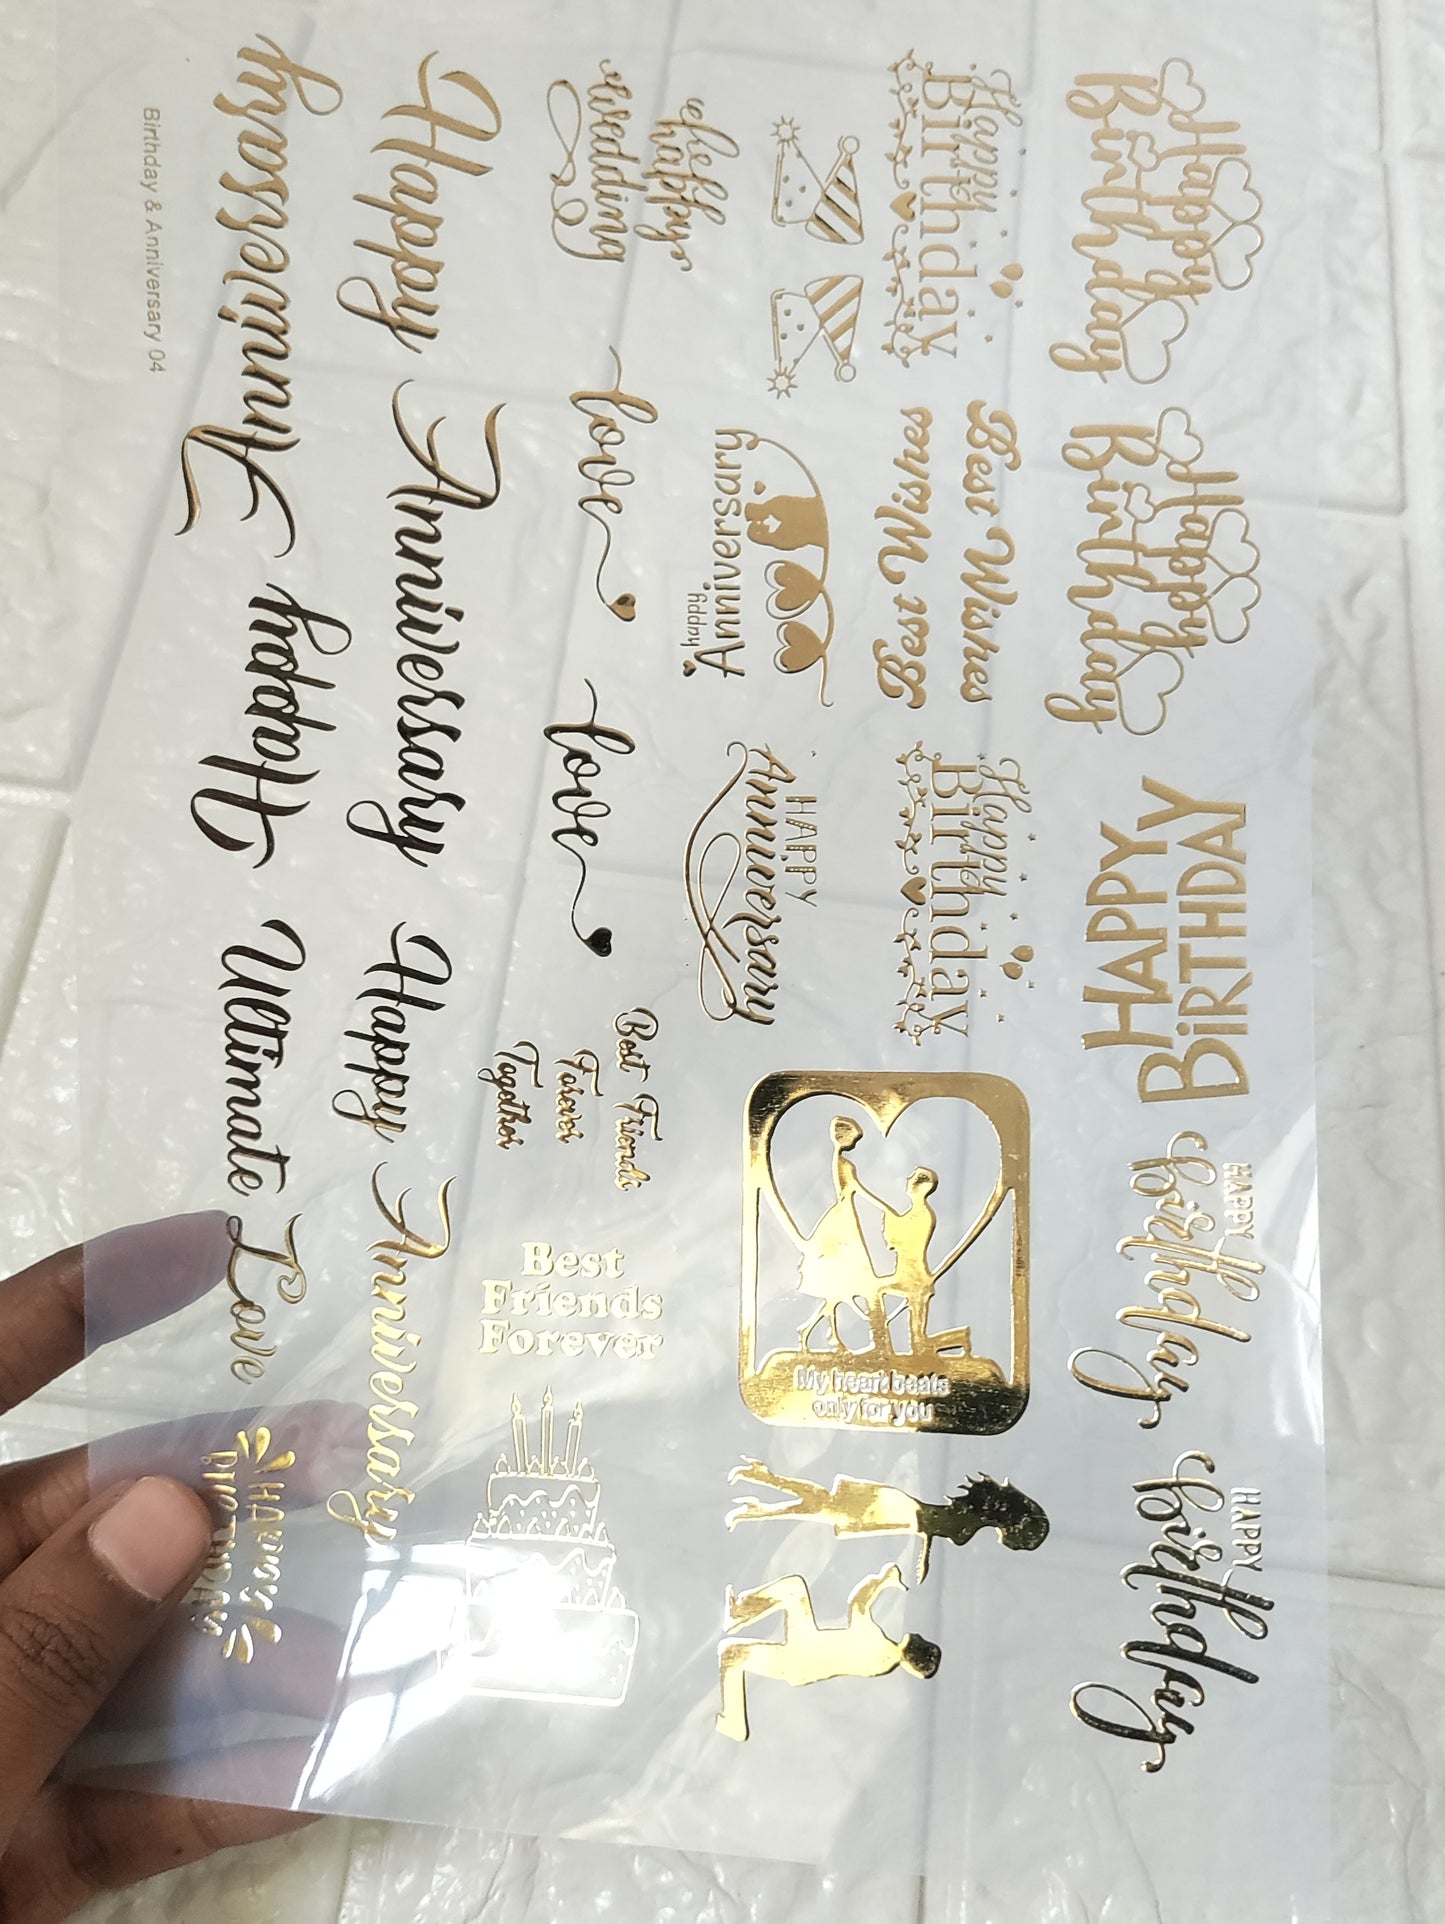 Happy
Birthday
Happy
Birthday
HAPPY
BiRTHDAY
HAPPY
Birthday
HAPPY
Birthday
Happy
Birthday
Best Wishes
Best Wishes
Happy
Birthday
happy
Anniversary
HAPPY
Anniversary
My heart beats
only for you
happy
wedding
love
love
Best Friends
Forever
Together
Best
Friends
Forever
Happy Anniversary
Happy Anniversary
Happy Anniversary
Ultimate Love
HAPPY
BIRTHDAY
Birthday & Anniversary 04